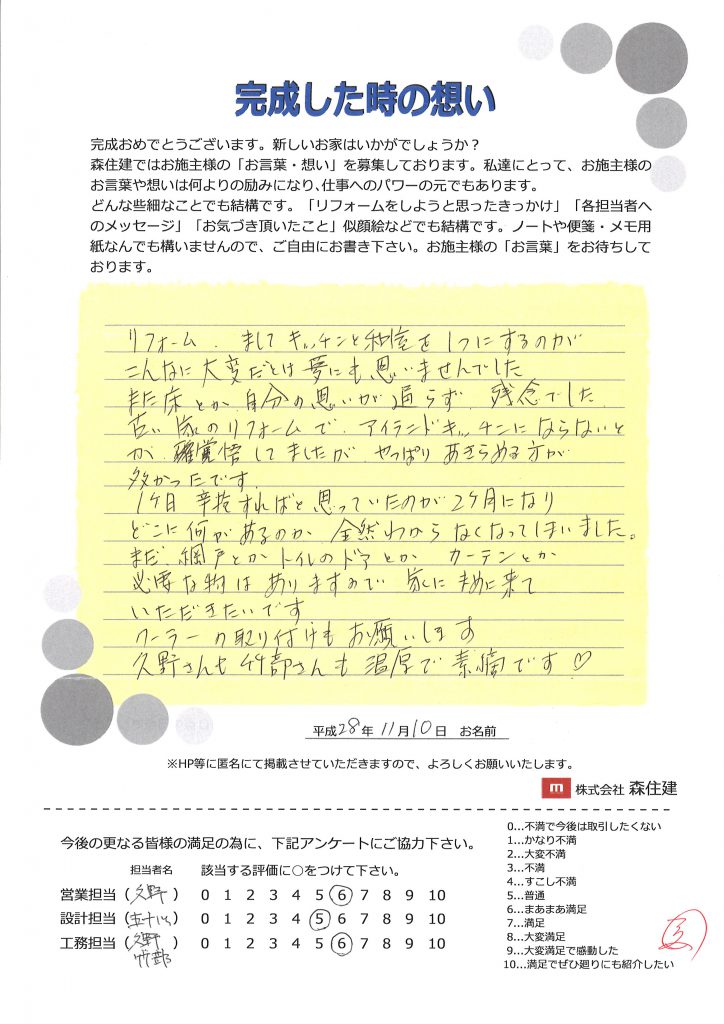 完成した時の想い
完成おめでとうございます。新しいお家はいかがでしょうか？
森住建ではお施主様の「お言葉・想い」を募集しております。私達にとって、お施主様の
お言葉や想いは何よりの励みになり、仕事へのパワーの元でもあります。
どんな些細なことでも結構です。「リフォームをしようと思ったきっかけ」「各担当者へ
のメッセージ」「お気づき頂いたこと」似顔絵などでも結構です。ノートや便箋・メモ用
紙なんでも構いませんので、ご自由にお書き下さい。お施主様の「お言葉」をお待ちして
おります。
リフォーム、ましてキッチンと和室を1つにするのが
こんなに大変だとは夢にも思いませんでした
また床とか自分の思いが通らず、残念でした
古い家のリフォームで、アイランドキッチンにならないと
か、覚悟してましたが やっぱりあきらめる方が
多かったです。
1ヶ月辛抱すればと思っていたのが2ヶ月になり
どこに何があるのか 全然わからなくなってしまいました。
まだ網戸とかトイレのドアとか カーテンとか
必要な物はありますので 家にまめに来て
いただきたいです
クーラーの取り付けもお願いします
久野さんも竹部さんも温厚で素敵です♡
平成28年11月10日 お名前
※HP等に匿名にて掲載させていただきますので、よろしくお願いいたします。
m 株式会社 森住建
今後の更なる皆様の満足の為に、下記アンケートにご協力下さい。
担当者名 該当する評価に○をつけて下さい。
営業担当（久野）0 1 2 3 4 5 6 7 8 9 10
設計担当（五十川）0 1 2 3 4 5 6 7 8 9 10
工務担当（久野 0 1 2 3 4 5 6 7 8 9 10
竹部）
0…不満で今後は取引したくない
1…かなり不満
2…大変不満
3…不満
4…すこし不満
5…普通
6…まあまあ満足
7…満足
8…大変満足
9…大変満足で感動した
10…満足でぜひ廻りにも紹介したい